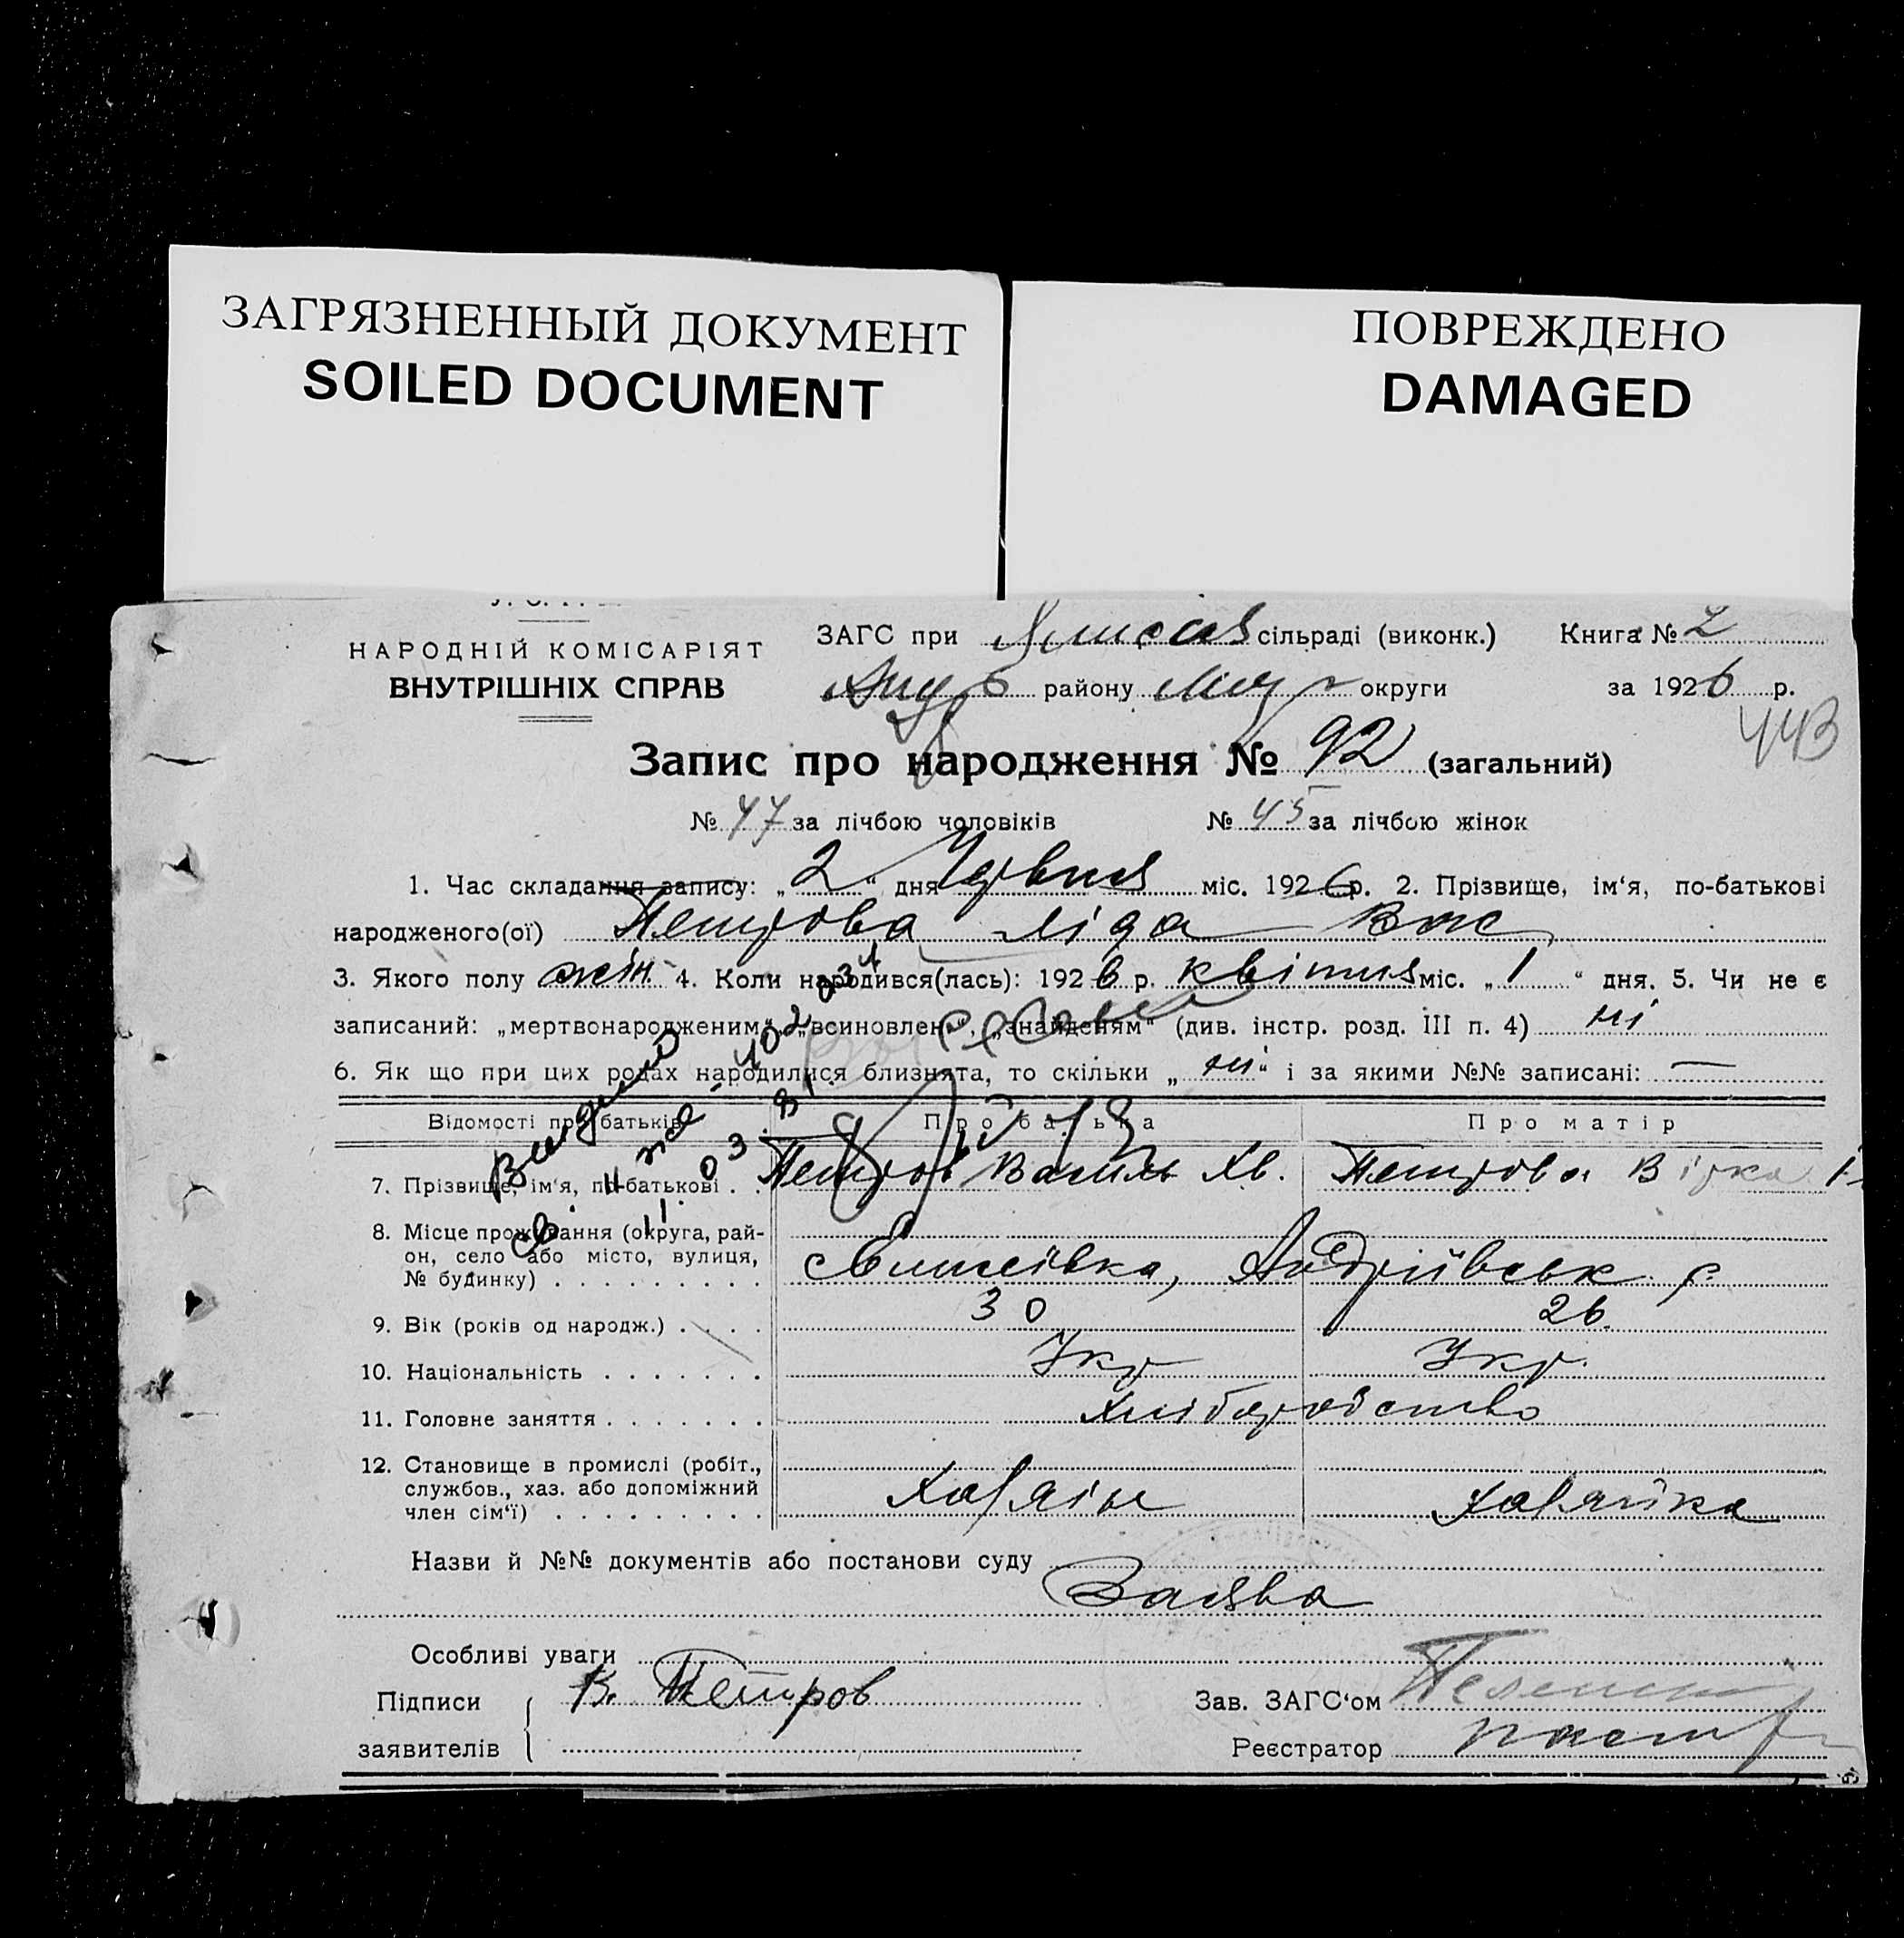 ЗАГРЯЗНЕННЫЙ ДОКУМЕНТ
SOILED DOCUMENT
ПОВРЕЖДЕНО
DAMAGED
НАРОДНІЙ КОМІСАРІЯТ
ВНУТРІШНІХ СПРАВ
ЗАГС при сільраді (виконк.) Книга № 2
району округи за 1926 р.
443
Запис про народження № 92 (загальний)
№ 47 за лічбою чоловіків № 45 за лічбою жінок
1. Час складання запису: „2“ дня Червня міс. 1926 р. 2. Прізвище, ім‘я, по-батькові
народженого(ої) Петрова Ліда Вас
3. Якого полу жін. 4. Коли народився(лась): 1926 р. квітня міс. „1“ дня. 5. Чи не є
записаний: „мертвонародженим“, „всиновлен“, „знайденям“ (див. інстр. розд. III п. 4) ні
6. Як що при цих родах народилися близнята, то скільки „ні“ і за якими №№ записані: —
Відомості про батьків Про батька Про матір
7. Прізвище, ім‘я, по-батькові . . Петров Василь Хв. Петрова Вірка І
8. Місце прожування (округа, рай-
он, село або місто, вулиця,
№ будинку) . . . . . . . . . Андріївськ р.
9. Вік (років од народж.) . . . . 30 26
10. Національність . . . . . . . Укр Укр.
11. Головне заняття . . . . . . . Хліборобство
12. Становище в промислі (робіт.,
службов., хаз. або допоміжний
член сім‘ї) . . . . . . . . . Хазяїн Хазяйка
Назви й №№ документів або постанови суду
Заява
Особливі уваги
Підписи В. Петров Зав. ЗАГС‘ом
заявителів Реєстратор